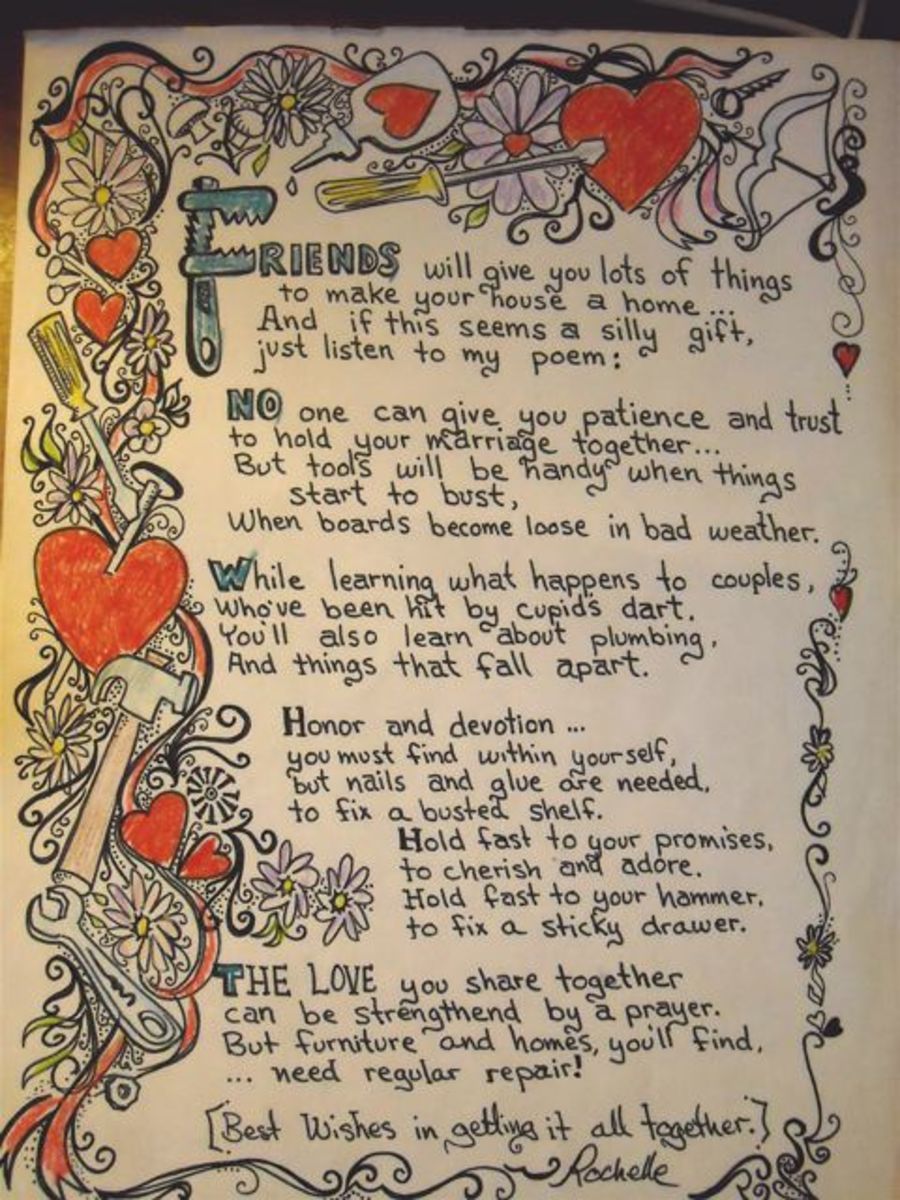 FRIENDS will give you lots of things
to make your house a home...
And if this seems a silly gift,
just listen to my poem:
NO one can give you patience and trust
to hold your marriage together...
But tools will be handy when things
start to bust,
When boards become loose in bad weather.
While learning what happens to couples,
Who've been hit by cupid's dart.
You'll also learn about plumbing,
And things that fall apart.
Honor and devotion...
you must find within yourself,
but nails and glue are needed,
to fix a busted shelf.
Hold fast to your promises,
to cherish and adore.
Hold fast to your hammer,
to fix a sticky drawer.
THE LOVE you share together
can be strengthend by a prayer.
But furniture and homes, you'll find,
... need regular repair!
[Best Wishes in getting it all together.]
Rochelle